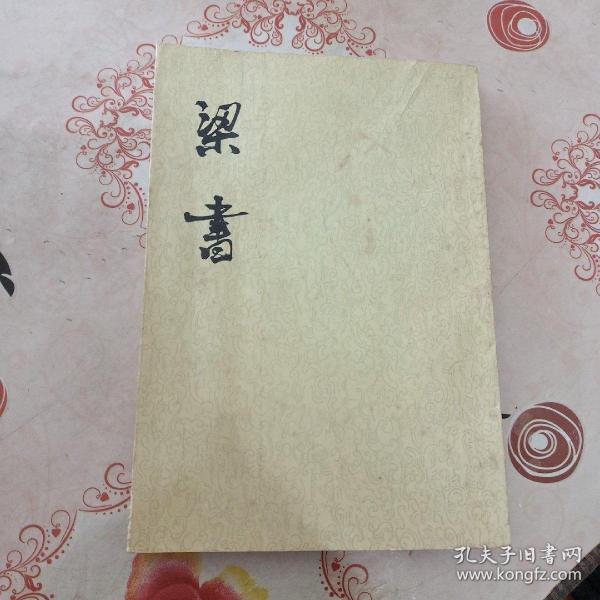 梁書
孔夫子旧書网
www.kongfz.com